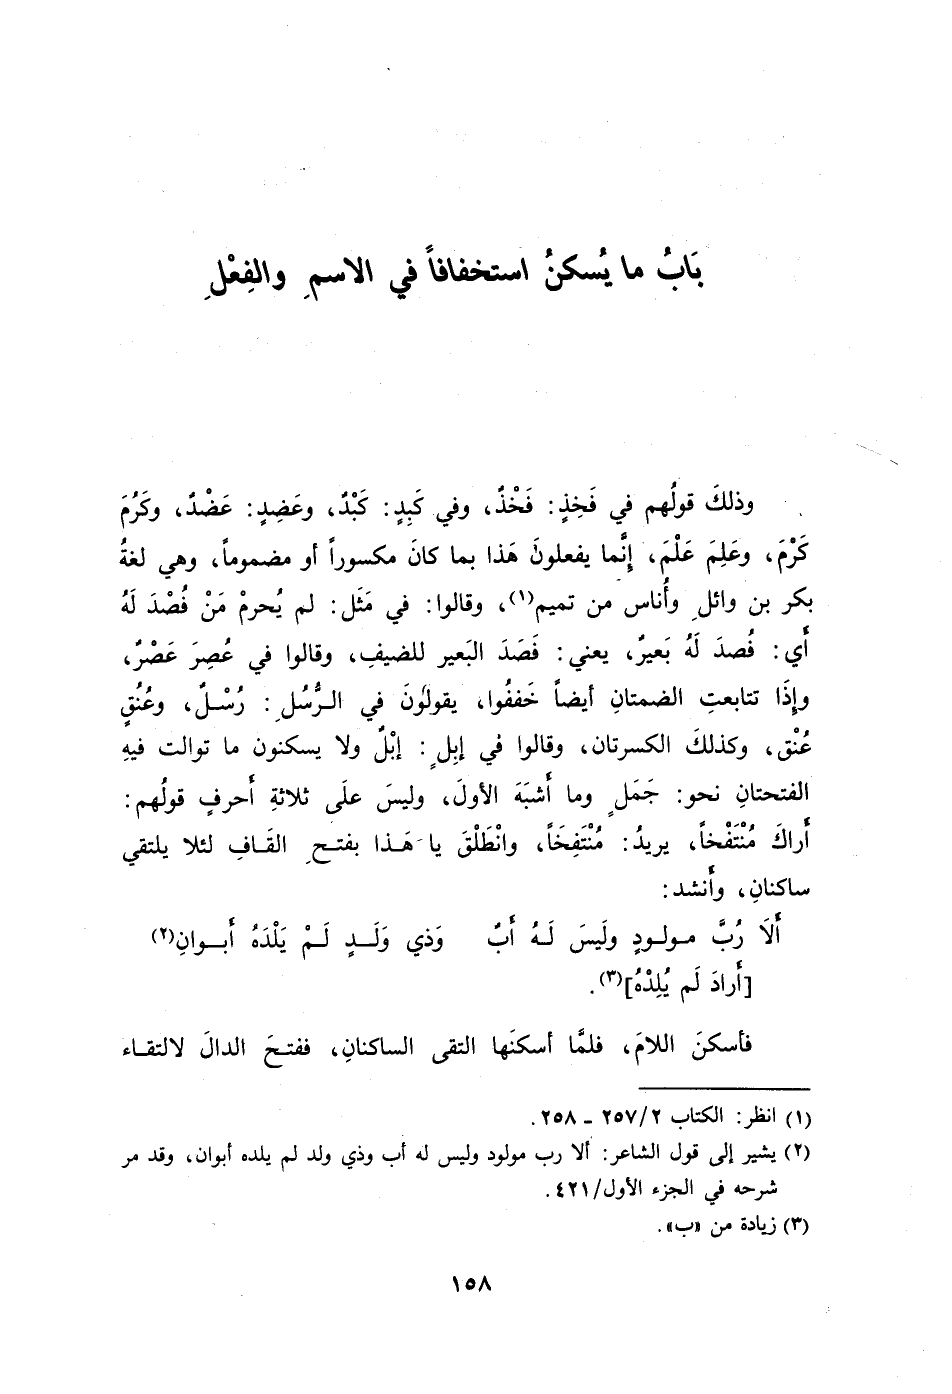 بَابُ ما يُسكنُ استخفافاً في الاسمِ والفِعْلِ
وذلكَ قولُهم في فَخِذٍ: فَخْذٌ، وفي كَبِدٍ: كَبْدٌ، وعَضِدٍ: عَضْدٌ، وكَرُمَ
كَرْمَ، وعَلِمَ عَلْمَ، إنَّما يفعلونَ هَذا بما كانَ مكسوراً أو مضموماً، وهي لغةُ
بكر بن وائلِ وأُناس من تميم(١)، وقالوا: في مَثَل: لم يُحرمْ مَنْ فُصْدَ لَهُ
أي: فُصدَ لَهُ بَعيرٌ، يعني: فَصَدَ البَعير للضيفِ، وقالوا في عُصِرَ عَصْرٌ،
وإِذَا تتابعتِ الضمتانِ أيضاً خَففُوا، يقولوُنَ في الرُّسُلِ: رُسْلٌ، وعُنُقٍ
عُنْق، وكذلكَ الكسرتان، وقالوا في إبِلٍ: إبْلٌ ولا يسكنون ما توالت فيهِ
الفتحتانِ نحو: جَمَلٍ وما أَشبَهَ الأولَ، وليسَ علَى ثلاثةِ أَحرفٍ قولُهم:
أَراكَ مُنْتَفْخاً، يريدُ: مُنْتَفِخَاً، وانْطَلْقَ يا هَذا بفتحِ القَافِ لئلا يلتقي
ساكنانِ، وأَنشد:
أَلَا رُبَّ مولودٍ ولَيسَ لَهُ أَبٌ وَذي وَلَدٍ لَمْ يَلْدَهُ أَبوانِ(٢)
[أَرادَ لَم يُلِدْهُ](٣).
فأسكنَ اللامَ، فلمَّا أسكنَها التقى الساكنانِ، ففتحَ الدالَ لالتقاء
(١) انظر: الكتاب ٢/ ٢٥٧ ـ ٢٥٨.
(٢) يشير إلى قول الشاعر: ألا رب مولود وليس له أب وذي ولد لم يلده أبوان، وقد مر
شرحه في الجزء الأول/٤٢١.
(٣) زيادة من «ب».
١٥٨